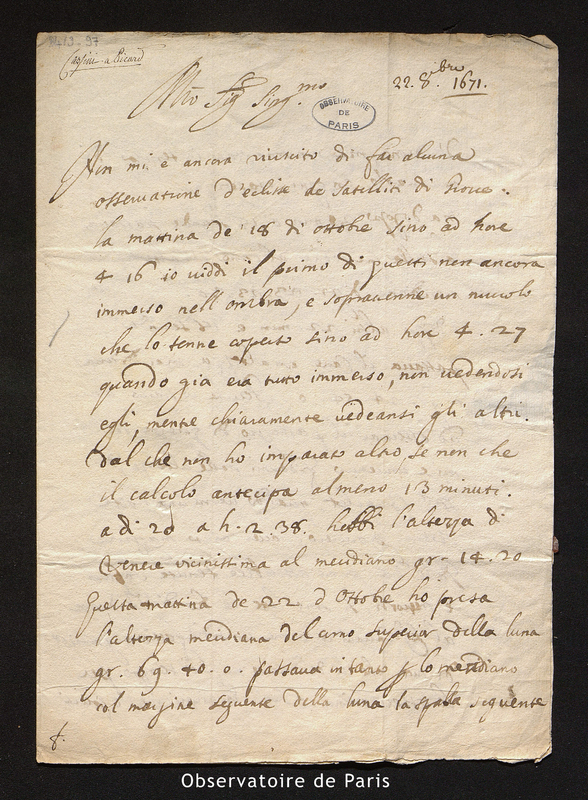 Cassini a Picard
22. 8.bre 1671.
OBSERVATOIRE
DE
PARIS
Non mi è ancora riuscito di far alcuna
osservatione d'eclisse de satelliti di Giove.
la mattina de' 18 di ottobre sino ad hore
4 16 io viddi il primo di questi non ancora
immerso nell'ombra, e sopravenne un nuvolo
che lo tenne coperto sino ad hore 4. 27
quando già era tutto immerso, non vedendosi
egli, mentre chiaramente vedeansi gli altri.
dal che non ho imparato altro, se non che
il calcolo antecipa almeno 13 minuti.
a di 20 a h. 2 38. hebbi l'altezza di
Venere vicinissima al meridiano gr. 14. 20
questa mattina de 22 d'Ottobre ho presa
l'altezza meridiana del corno superior della luna
gr. 69. 40. 0. passava intanto p lo meridiano
col margine seguente della luna la spalla seguente
Observatoire de Paris